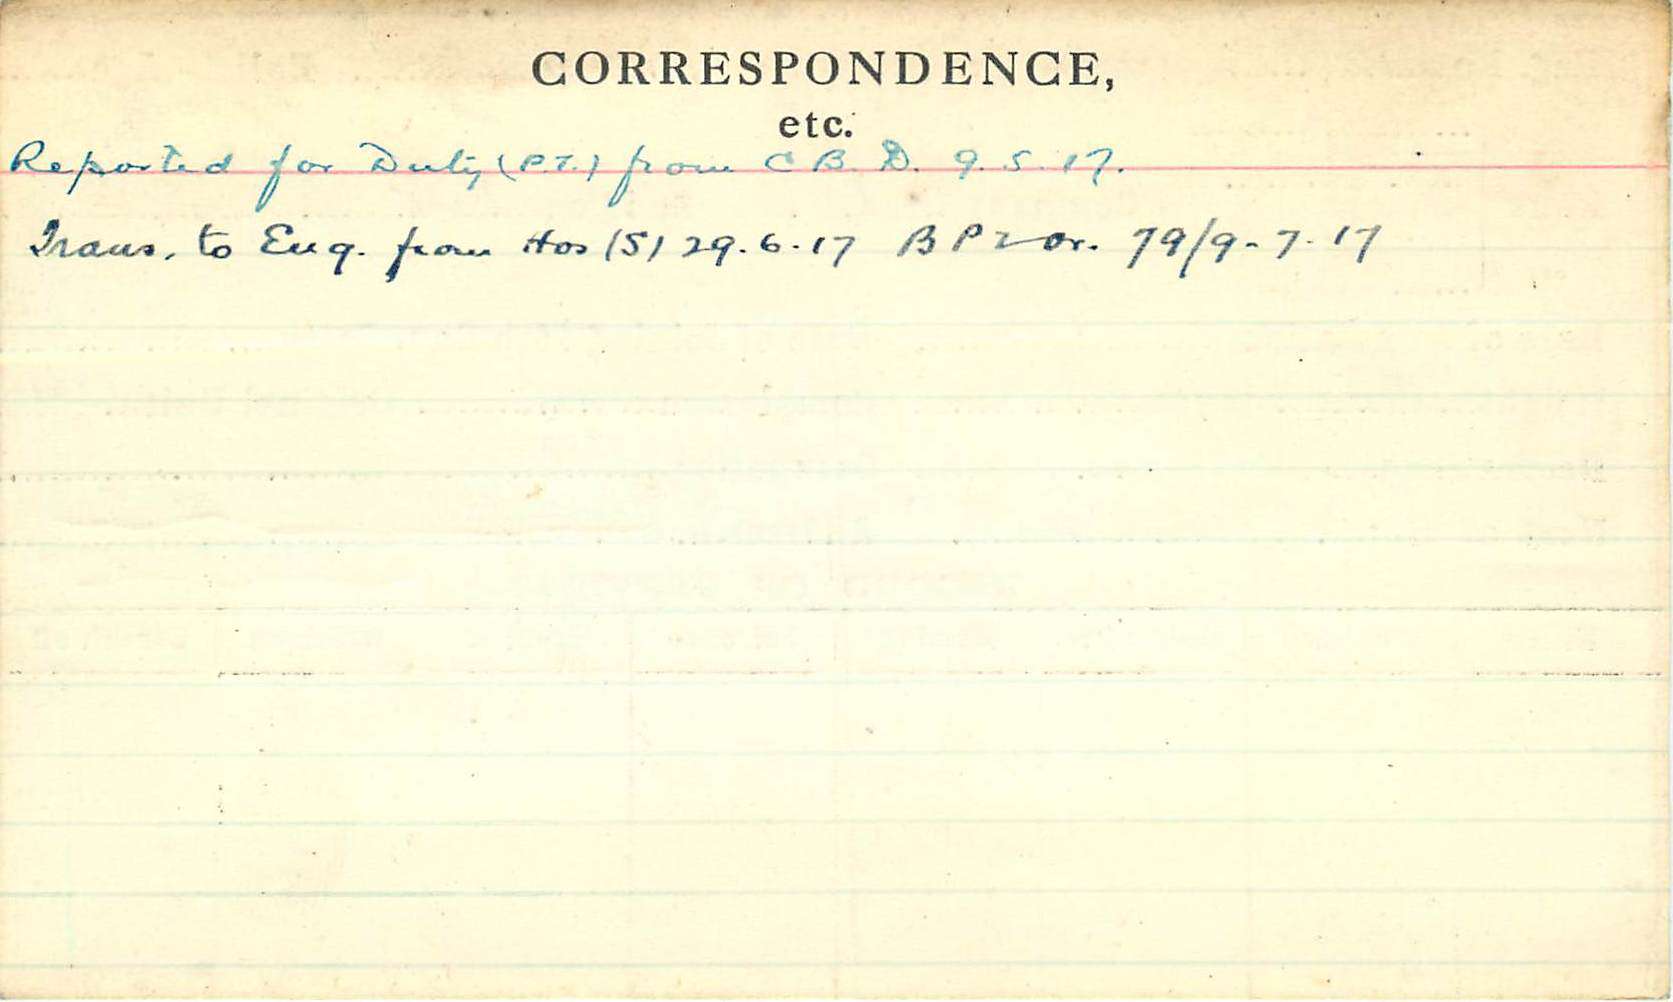 CORRESPONDENCE,
etc.
Reported for Duty (P.T.) from C B. D. 9.5.17.
Trans. to Eng. from Hos (S) 29.6.17 B P 2 or. 79/9-7-17